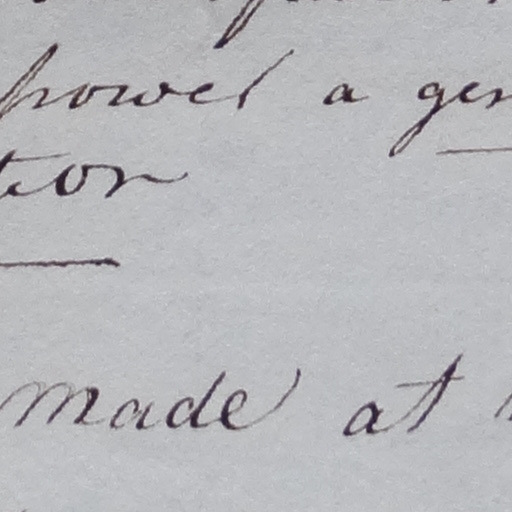 power a gen
tion
made at